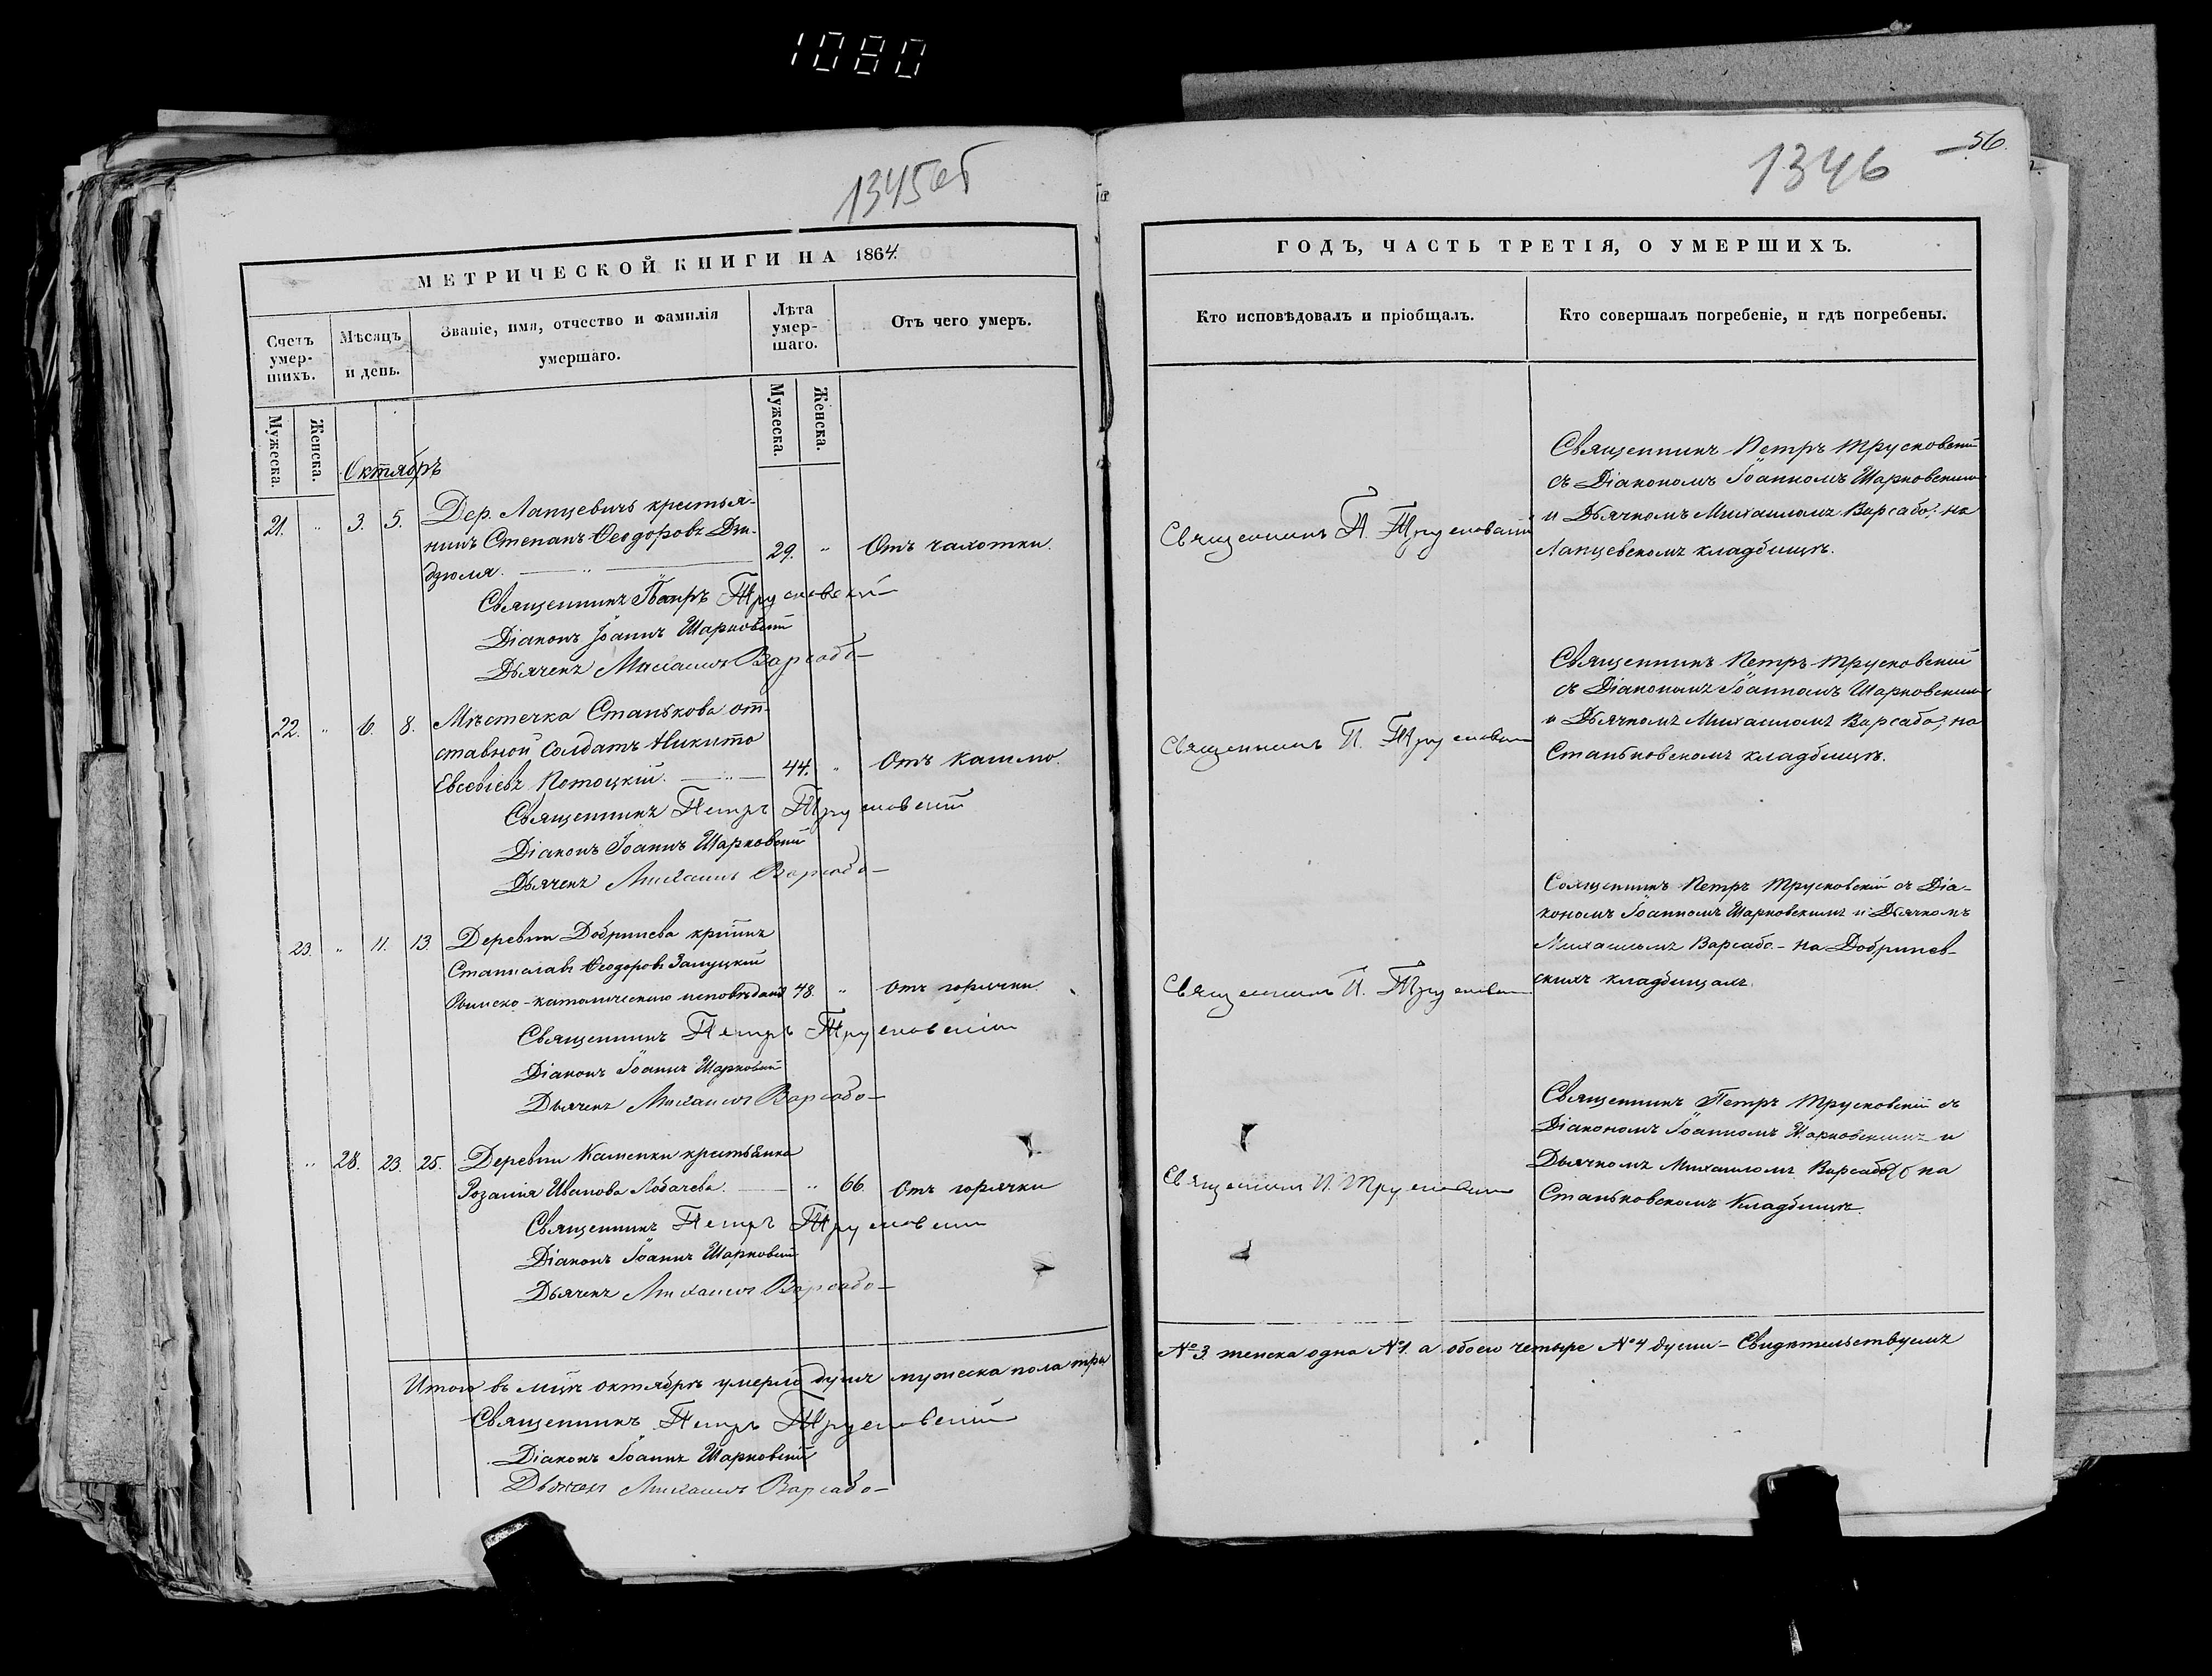 1080
1345об
МЕТРИЧЕСКОЙ КНИГИ НА 1864
Счетъ умер-шихъ.
Мѣсяцъ и день.
Званіе, имя, отчество и фамилія умершаго.
Лѣта умер-шаго.
Отъ чего умеръ.
Мужеска.
Женска.
Мужеска.
Женска.
Октябрь
21. " 3. 5. Дер. Лапцевичь крестья-
нинъ Степанъ Ѳеодоровъ Дзи-
дзюля. 29. " Отъ чахотки.
Священникъ Петръ Трусковскій
Діаконъ Іоаннъ Шарковскій
Дьячекъ Михаилъ Варсабо
22. " 6. 8. Мѣстечка Станькова от-
ставной солдатъ Никита
Евсевіевъ Потоцкій. 44. " Отъ кашлю.
Священникъ Петръ Трусковскій
Діаконъ Іоаннъ Шарковскій
Дьячекъ Михаилъ Варсабо
23. " 11. 13. Деревни Добринева
Станиславъ Ѳеодоровъ Залуцкій
Римско-католическаго исповѣданія 48. " Отъ горячки.
Священникъ Петръ Трусковскій
Діаконъ Іоаннъ Шарковскій
Дьячекъ Михаилъ Варсабо
" 28. 23. 25. Деревни Каменки крестьянка
Розалія Иванова Лобачева. " 66. Отъ горячки
Священникъ Петръ Трусковскій
Діаконъ Іоаннъ Шарковскій
Дьячекъ Михаилъ Варсабо
Итого въ мцѣ октябрѣ умерло душъ мужеска пола три
Священникъ Петръ Трусковскій
Діаконъ Іоаннъ Шарковскій
Дьячекъ Михаилъ Варсабо
1346
56.
ГОДЪ, ЧАСТЬ ТРЕТІЯ, О УМЕРШИХЪ.
Кто исповѣдовалъ и пріобщалъ.
Кто совершалъ погребеніе, и гдѣ погребены.
Священникъ П. Трусковскій
Священникъ Петръ Трусковскій
съ Діакономъ Іоанномъ Шарковскимъ
и Дьячкомъ Михаиломъ Варсабо, на
Лапцевскомъ кладбищѣ.
Священникъ П. Трусковскій
Священникъ Петръ Трусковскій
съ Діакономъ Іоанномъ Шарковскимъ
и Дьячкомъ Михаиломъ Варсабо, на
Станьковскомъ кладбищѣ.
Священникъ П. Трусковскій
Священникъ Петръ Трусковскій съ Діа-
кономъ Іоанномъ Шарковскимъ и Дьячкомъ
Михаиломъ Варсабо - на Добринев-
скихъ кладбищахъ.
Священникъ П. Трусковскій
Священникъ Петръ Трусковскій съ
Діакономъ Іоанномъ Шарковскимъ и
Дьячкомъ Михаиломъ Варсабо на
Станьковскомъ Кладбищѣ.
№ 3 женска одна № 1. а обоего четыре № 4 души - Свидѣтельствуемъ